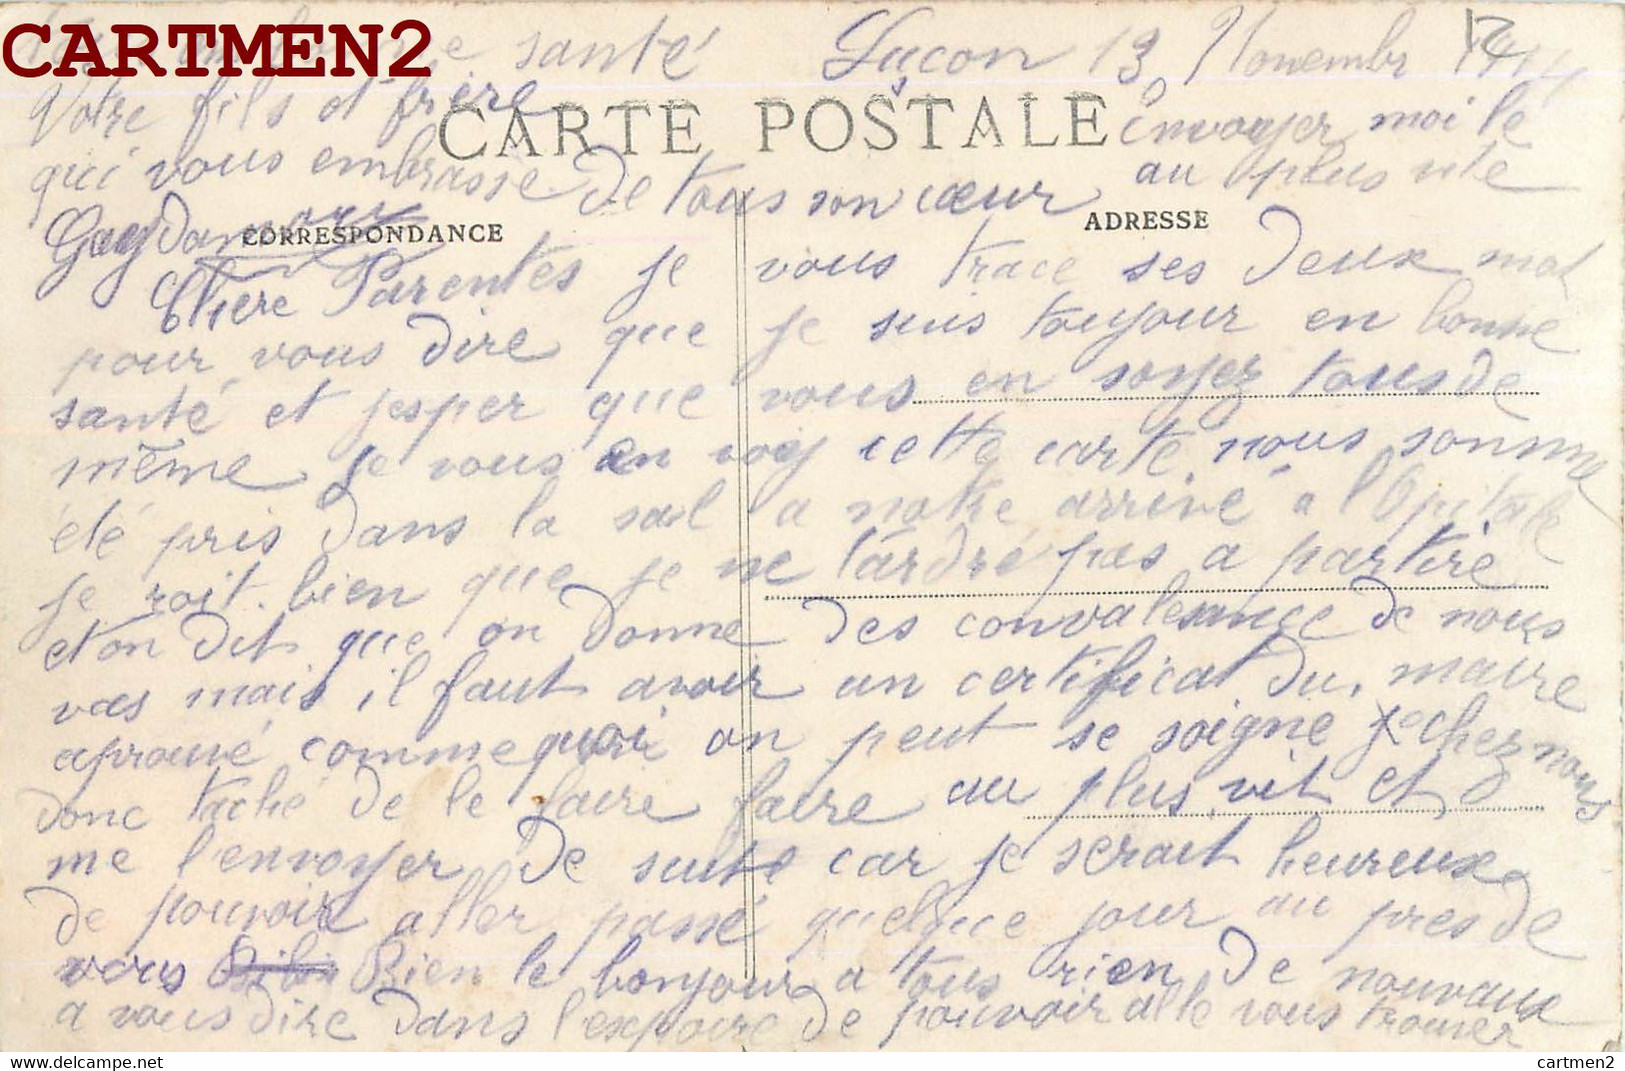 CARTMEN2
santé Luçon 13 Novembr
Votre fils et frère
CARTE POSTALE
envoyer moi le
qui vous embrasse de tous son cœur au plus vite
CORRESPONDANCE
ADRESSE
Chere Parentes je vous trace ses deux mot
pour vous dire que je suis toujour en bonne
santé et jesper que vous en soyez tous de
même je vous en voy cette carte nous somme
été pris dans la sal a notre arrivé a l'Opitale
je croit bien que je ne tardré pas a partire
et on dit que on donne des convalesance de nous
vas mais il faut avoir un certificat du maire
aprouvé comme quoi on peut se soigné chez nous
donc taché de le faire faire au plus vit et
me l'envoyer de suite car je serait heureux
de pouvoir aller passé quelque jour au pres de
vous Bien le bonjour a tous rien de nouvaux
a vous dire dans l'expoire de pouvoir allé vous trouver
cartmen2